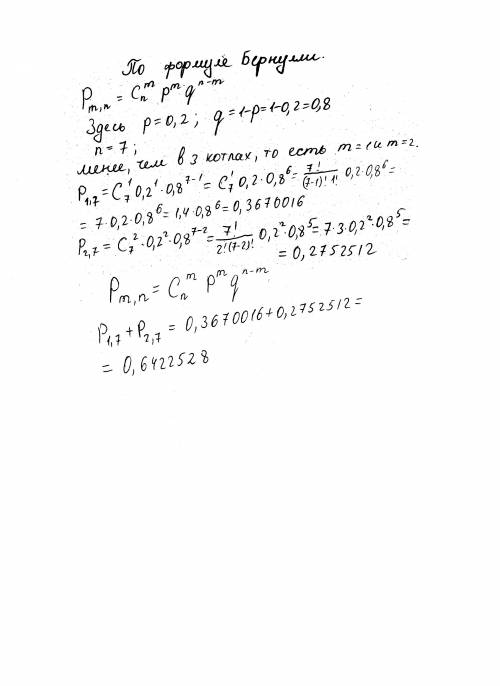 По формуле Бернулли.
P_{m,n} = C_n^m p^m q^{n-m}
Здесь p=0,2; q=1-p=1-0,2=0,8
n=7;
менее, чем в 3 котлах, то есть m=1 и m=2.
P_{1,7} = C_7^1 0,2^1·0,8^{7-1} = C_7^1 0,2·0,8^6 = 7!/((7-1)! 1!) 0,2·0,8^6 =
= 7·0,2·0,8^6 = 1,4·0,8^6 = 0,3670016
P_{2,7} = C_7^2·0,2^2·0,8^{7-2} = 7!/(2!(7-2)!) 0,2^2·0,8^5 = 7·3·0,2^2·0,8^5 =
= 0,2752512
P_{m,n} = C_n^m p^m q^{n-m}
P_{1,7} + P_{2,7} = 0,3670016+0,2752512 =
= 0,6422528